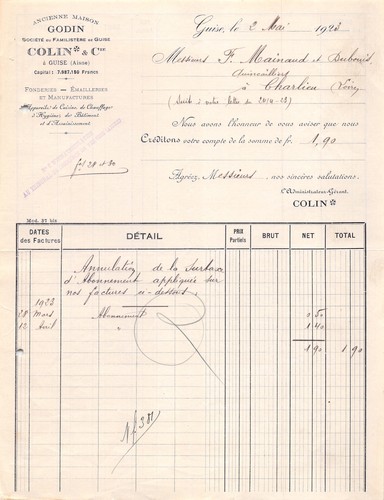 ANCIENNE MAISON
GODIN
SOCIÉTÉ DU FAMILISTÈRE DE GUISE
COLIN* & Cie
à GUISE (Aisne)
Capital : 7.987.150 Francs
FONDERIES — ÉMAILLERIES
ET MANUFACTURES
d'Appareils de Cuisine, de Chauffage
d'Hygiène, du Bâtiment
et d'Assainissement
Guise, le 2 Mai 1923
Messieurs F. Mainaud et Dubouis,
Quincailliers
à Charlieu (Loire)
(Suite à votre lettre du 24/4-23)
Nous avons l'honneur de vous aviser que nous
Créditons votre compte de la somme de fr. 1,90
Agréez, Messieurs, nos sincères salutations.
L'Administrateur-Gérant,
COLIN*
Mod. 37 bis
DATES des Factures DÉTAIL PRIX Partiels BRUT NET TOTAL
Annulation de la Surtaxe
d'Abonnement appliquée sur
nos factures ci-dessous.
1923
28 Mars Abonnement 0 50
12 Avril " 1 40
1 90 1 90